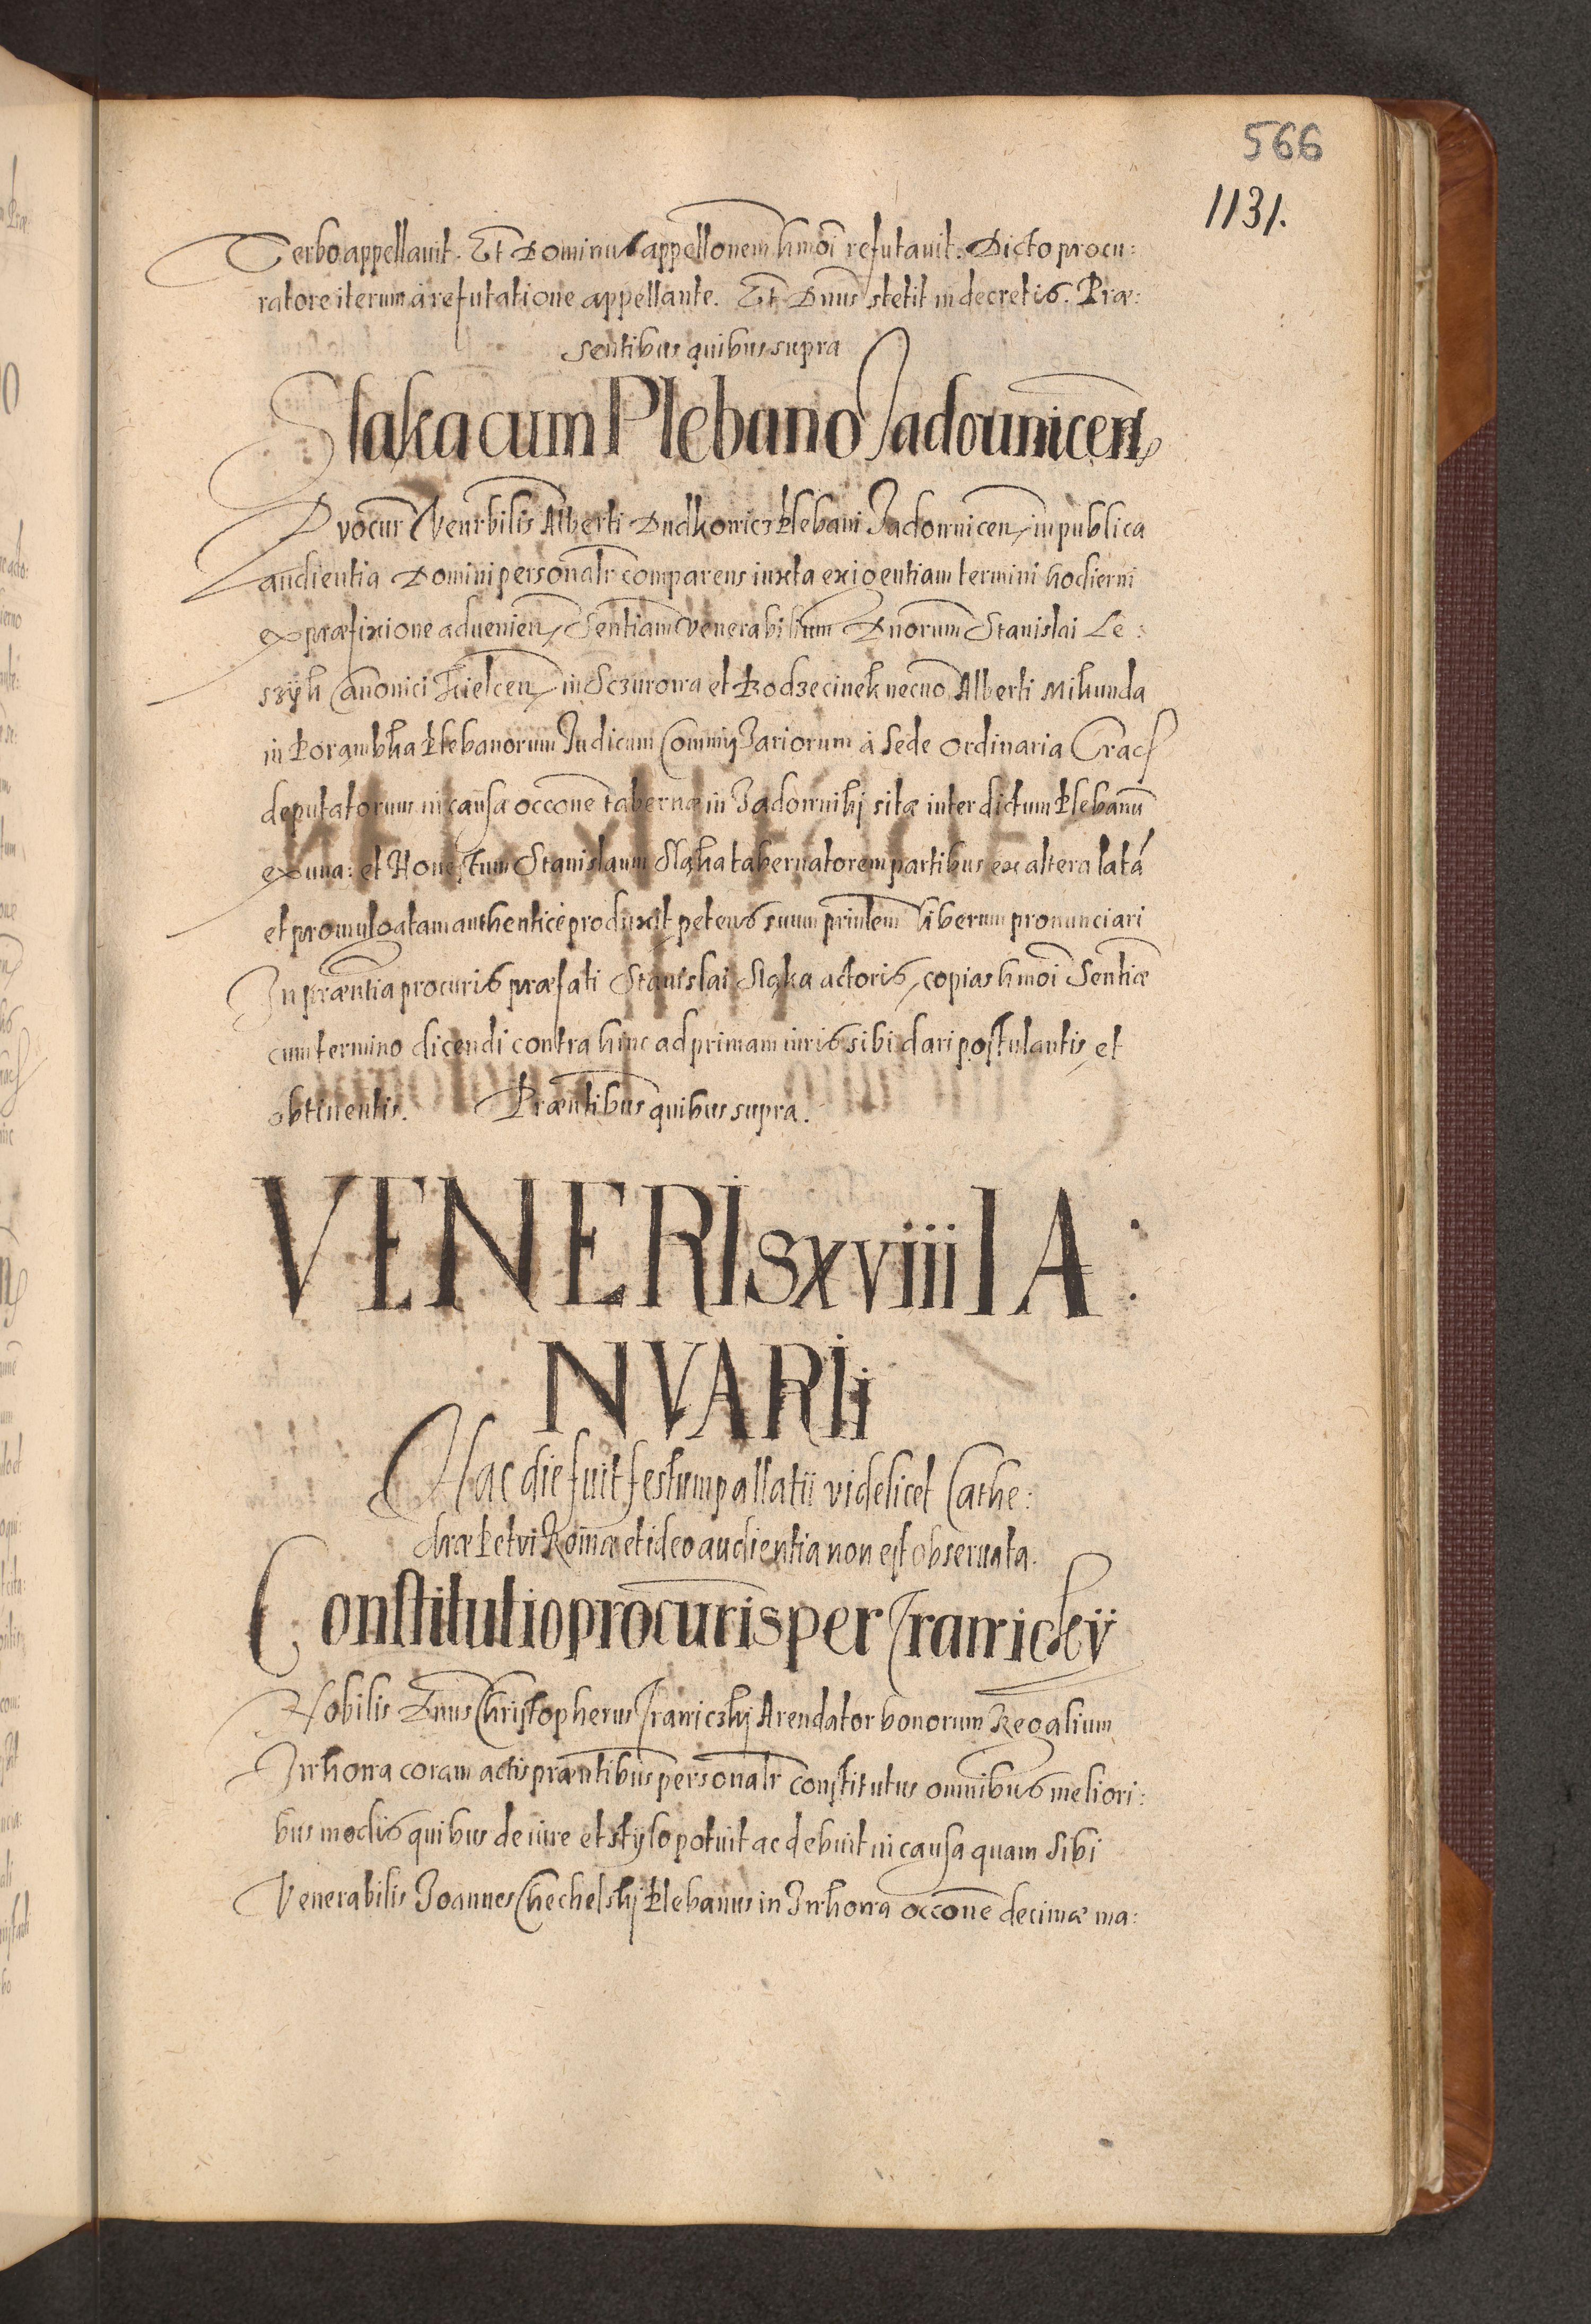 566
1131.
Verbo appellauit. Et Dominus appellonem hmoi refutauit. Dicto procu:
ratore iterum à refutatione appellante. Et Dnus stetit in decretis. Præ:
sentibus quibus supra
Slaka cum Plebano Jadounicen
Procur Venerbilis Alberti Dudkowicz Plebani Jadownicen, in publica
audientia Domini personalr comparens iuxta exigentiam termini hodierni
ex præfixione aduenien, Sentiam venerabilium Dnorum Stanislai Le:
szyk Canonici Kielcen, in Sczurowa et Rodzecinek necno Alberti Mikunda
in Porąmbka Plebanorum Judicum Commissariorum à Sede Ordinaria Crac
deputatorum in causa occone tabernæ in Jadowniki sitæ inter dictum Plebanū
ex una: et Honestum Stanislaum Sląka tabernatorem partibus ex altera latā
et promulgatam authenticè produxit, petens suum prinlem liberum pronunciari
In præntia procuris præfati Stanislai Sląka actoris, copias hmoi Sentiæ
cum termino dicendi contra hinc ad primam iuris sibi dari postulantis, et
obtinentis. Præntibus quibus supra.
VENERIs xviiii IA:
NVARIi
Hac die fuit festum pallatii videlicet Cathe:
dræ Petri Romæ et ideo audientia non est obseruata.
Constitutio procuris per Irarricky
Nobilis Dnus Christopherus Irarriczky Arendator bonorum Regalium
Inkowa coram actis præntibus personalr constitutus omnibus meliori:
bus modis quibus de iure et stylo potuit ac debuit in causa quam sibi
Venerabilis Joannes Chechelsky Plebanus in Inkowa occone decimæ ma: